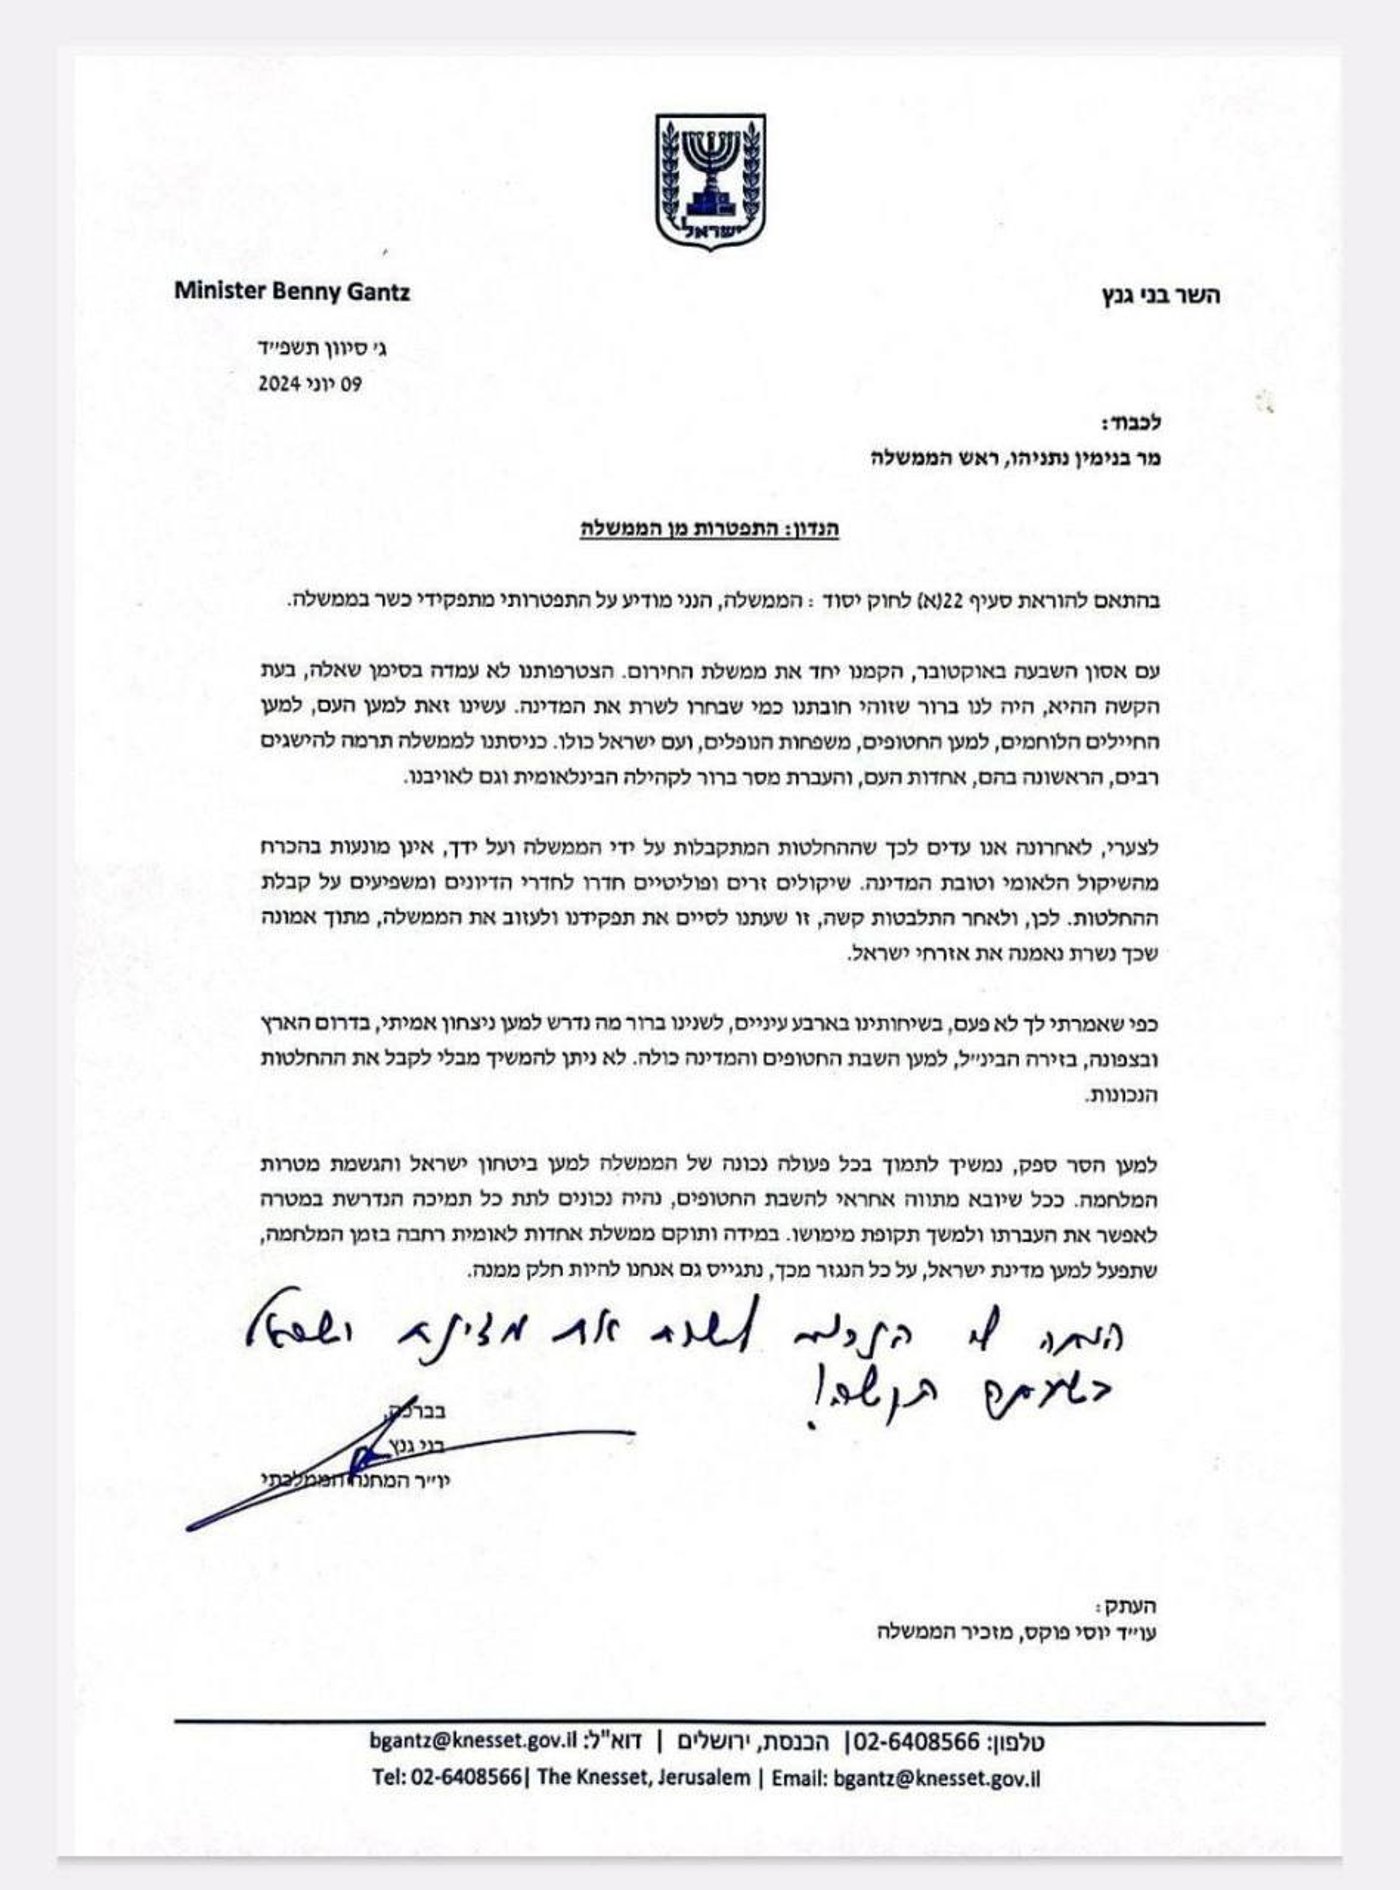 ישראל
השר בני גנץ
Minister Benny Gantz
ג׳ סיוון תשפ״ד
09 יוני 2024
לכבוד:
מר בנימין נתניהו, ראש הממשלה
הנדון: התפטרות מן הממשלה
בהתאם להוראת סעיף 22(א) לחוק יסוד : הממשלה, הנני מודיע על התפטרותי מתפקידי כשר בממשלה.
עם אסון השבעה באוקטובר, הקמנו יחד את ממשלת החירום. הצטרפותנו לא עמדה בסימן שאלה, בעת
הקשה ההיא, היה לנו ברור שזוהי חובתנו כמי שבחרו לשרת את המדינה. עשינו זאת למען העם, למען
החיילים הלוחמים, למען החטופים, משפחות הנופלים, ועם ישראל כולו. כניסתנו לממשלה תרמה להישגים
רבים, הראשונה בהם, אחדות העם, והעברת מסר ברור לקהילה הבינלאומית וגם לאויבנו.
לצערי, לאחרונה אנו עדים לכך שההחלטות המתקבלות על ידי הממשלה ועל ידך, אינן מונעות בהכרח
מהשיקול הלאומי וטובת המדינה. שיקולים זרים ופוליטיים חדרו לחדרי הדיונים ומשפיעים על קבלת
ההחלטות. לכן, ולאחר התלבטות קשה, זו שעתנו לסיים את תפקידנו ולעזוב את הממשלה, מתוך אמונה
שכך נשרת נאמנה את אזרחי ישראל.
כפי שאמרתי לך לא פעם, בשיחותינו בארבע עיניים, לשנינו ברור מה נדרש למען ניצחון אמיתי, בדרום הארץ
ובצפונה, בזירה הבינ״ל, למען השבת החטופים והמדינה כולה. לא ניתן להמשיך מבלי לקבל את ההחלטות
הנכונות.
למען הסר ספק, נמשיך לתמוך בכל פעולה נכונה של הממשלה למען ביטחון ישראל והגשמת מטרות
המלחמה. ככל שיובא מתווה אחראי להשבת החטופים, נהיה נכונים לתת כל תמיכה הנדרשת במטרה
לאפשר את העברתו ולמשך תקופת מימושו. במידה ותוקם ממשלת אחדות לאומית רחבה בזמן המלחמה,
שתפעל למען מדינת ישראל, על כל הנגזר מכך, נתגייס גם אנחנו להיות חלק ממנה.
לשרת את מדינת ישראל
בשעתה הקשה!
בברכה,
בני גנץ
יו״ר המחנה הממלכתי
העתק:
עו״ד יוסי פוקס, מזכיר הממשלה
טלפון: 02-6408566| הכנסת, ירושלים | דוא"ל: bgantz@knesset.gov.il
Tel: 02-6408566| The Knesset, Jerusalem | Email: bgantz@knesset.gov.il